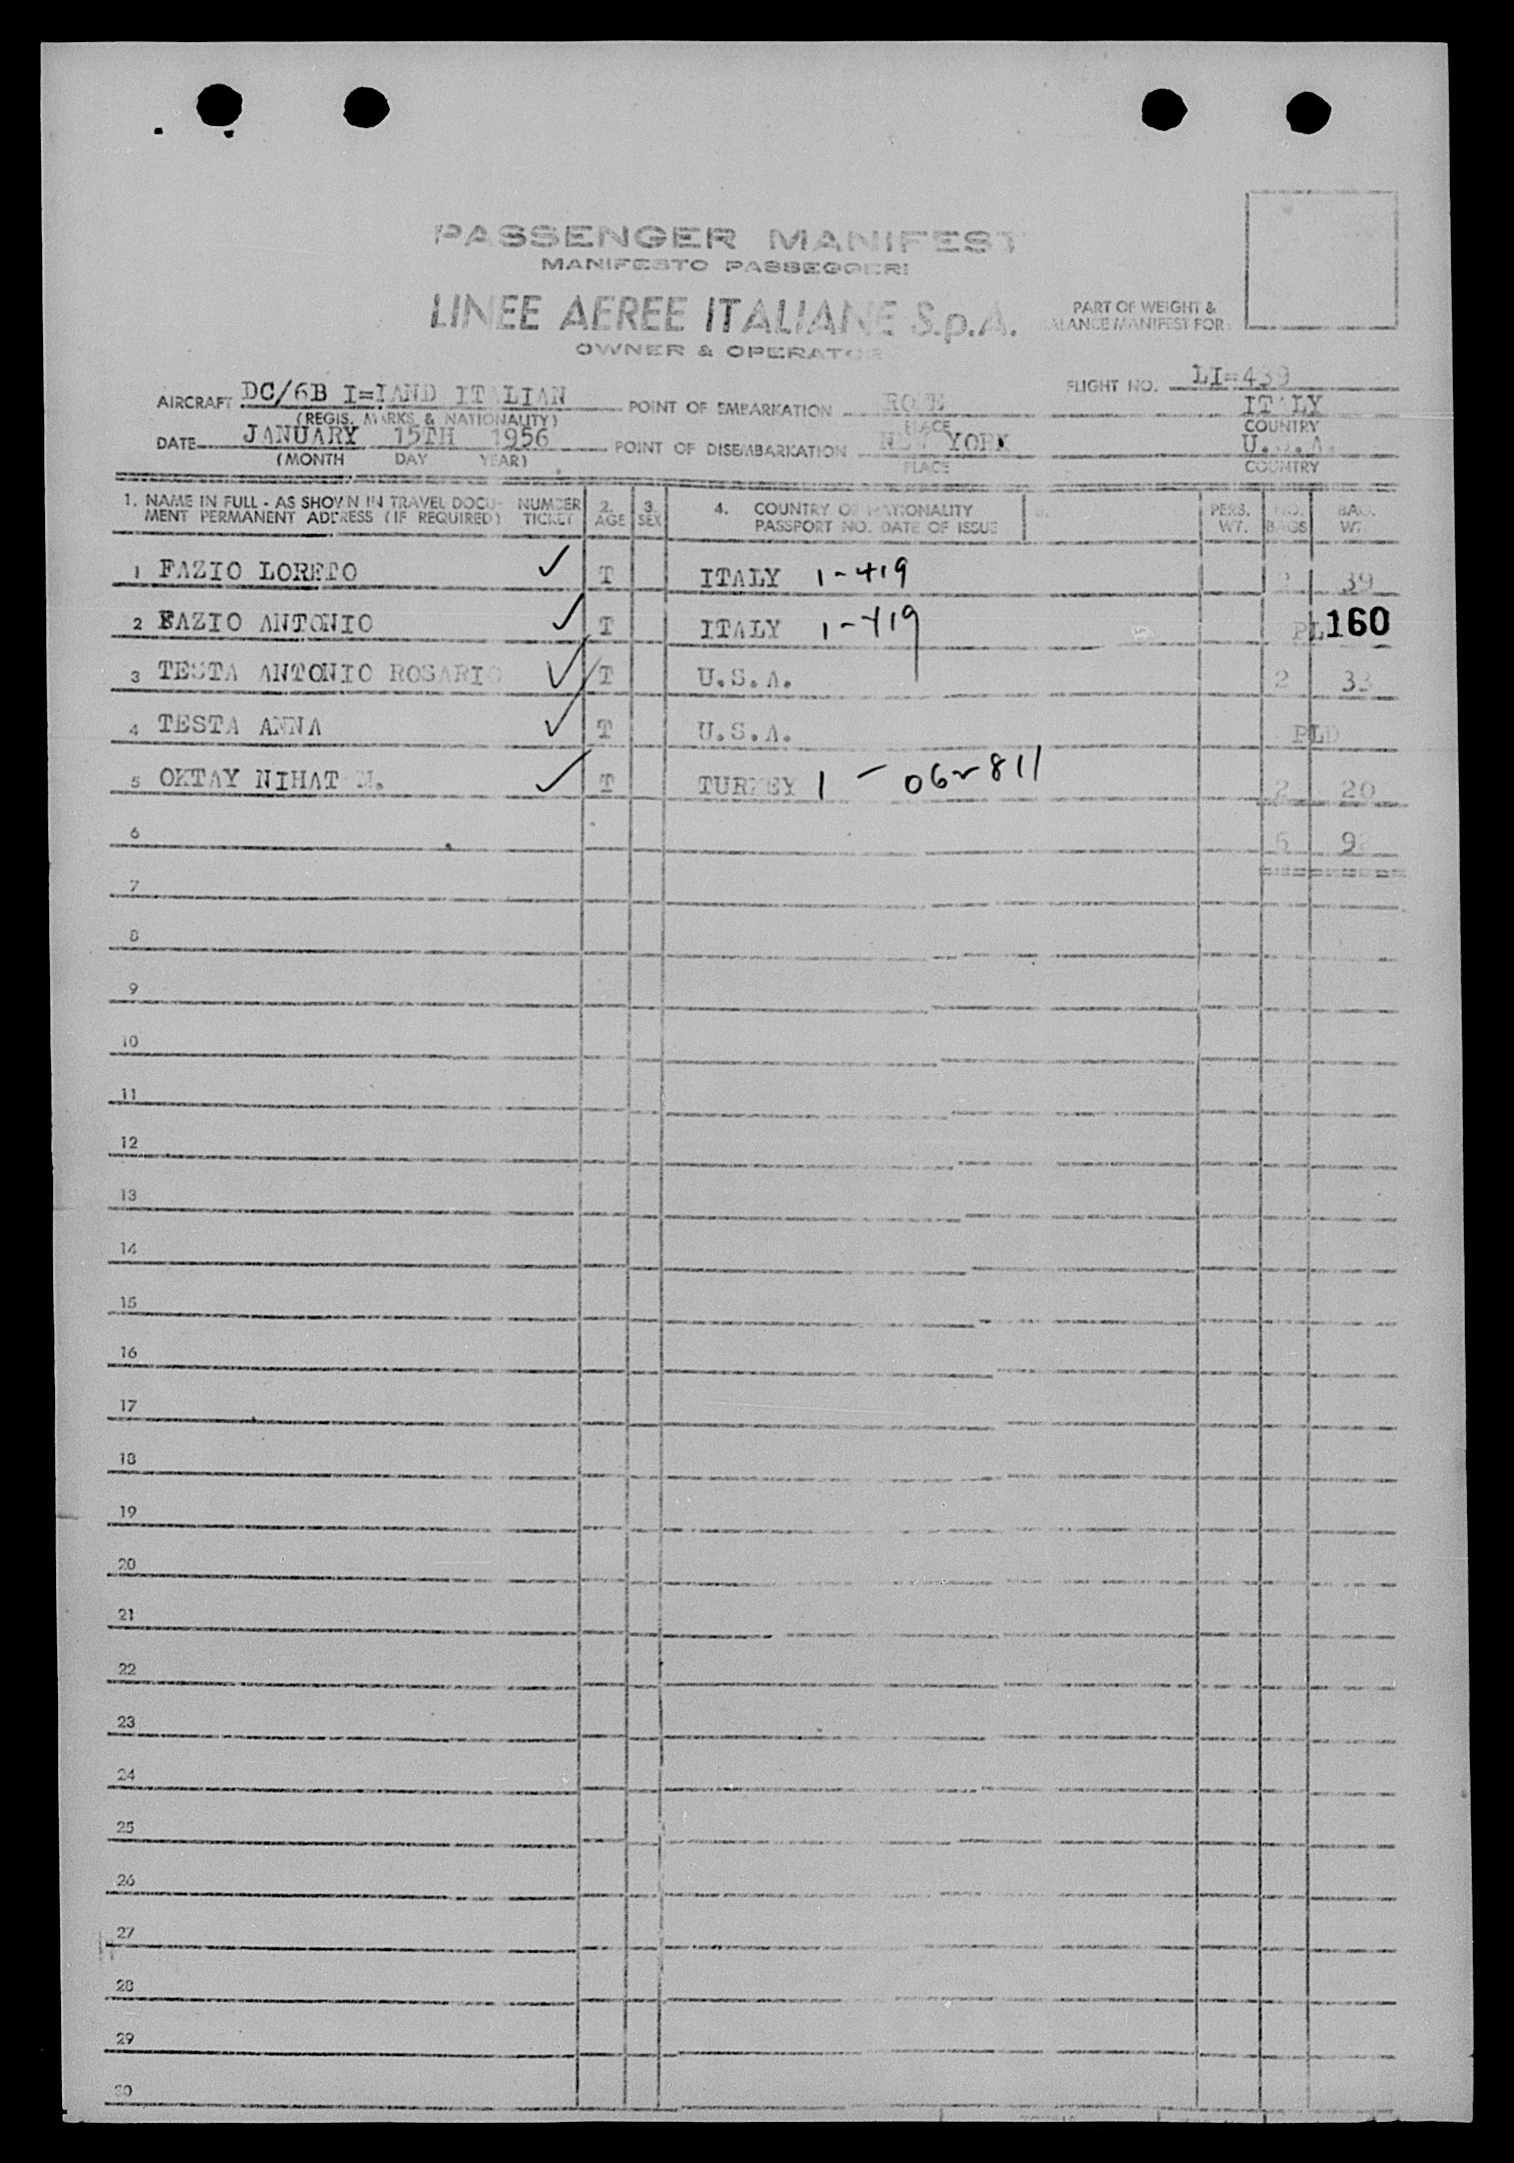 PASSENGER MANIFEST
MANIFESTO PASSEGGERI
LINEE AEREE ITALIANE S.p.A.
OWNER & OPERATOR
PART OF WEIGHT &
BALANCE MANIFEST FOR
AIRCRAFT DC/6B I=IAND ITALIAN POINT OF EMBARKATION ROME ITALY FLIGHT NO. LI=439
(REGIS. MARKS & NATIONALITY) PLACE COUNTRY
DATE JANUARY 15TH 1956 POINT OF DISEMBARKATION NEW YORK U.S.A.
(MONTH DAY YEAR) PLACE COUNTRY
1. NAME IN FULL - AS SHOWN IN TRAVEL DOCU- NUMBER 2. 3. 4. COUNTRY OF NATIONALITY PERS. NO. BAG.
MENT PERMANENT ADDRESS (IF REQUIRED) TICKET AGE SEX PASSPORT NO. DATE OF ISSUE WT. BAGS WT.
1 FAZIO LORETO ✓ T ITALY 1-419 2 39
2 FAZIO ANTONIO ✓ T ITALY 1-419 PL 160
3 TESTA ANTONIO ROSARIO ✓ T U.S.A. 2 33
4 TESTA ANNA ✓ T U.S.A. PLD
5 OKTAY NIHAT M. ✓ T TURKEY 1 - 062811 2 20
6 6 92
7
8
9
10
11
12
13
14
15
16
17
18
19
20
21
22
23
24
25
26
27
28
29
30